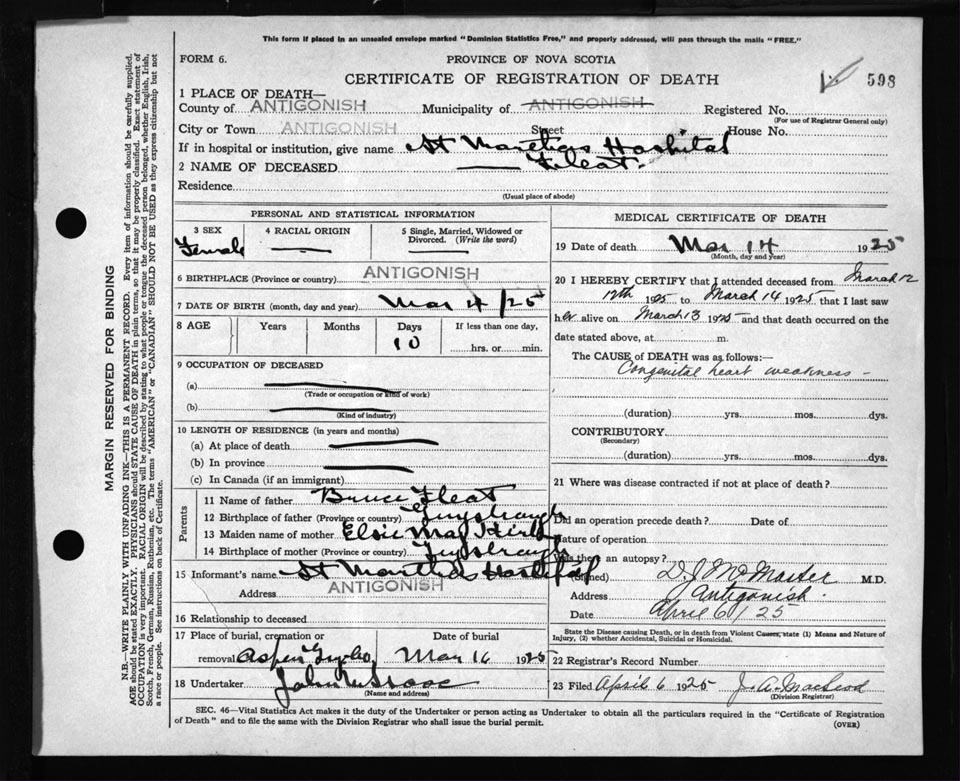 This form if placed in an unsealed envelope marked "Dominion Statistics Free," and properly addressed, will pass through the mails "FREE."
FORM 6.
PROVINCE OF NOVA SCOTIA
CERTIFICATE OF REGISTRATION OF DEATH
598
1 PLACE OF DEATH—
County of ANTIGONISH Municipality of ANTIGONISH Registered No.
(For use of Registrar General only)
City or Town ANTIGONISH Street House No.
If in hospital or institution, give name St Marthas Hospital
2 NAME OF DECEASED — Fleat.
Residence
(Usual place of abode)
PERSONAL AND STATISTICAL INFORMATION
3 SEX 4 RACIAL ORIGIN 5 Single, Married, Widowed or Divorced. (Write the word)
Female — —
6 BIRTHPLACE (Province or country) ANTIGONISH
7 DATE OF BIRTH (month, day and year) Mar 4/25
8 AGE Years Months Days If less than one day,
10 hrs. or min.
9 OCCUPATION OF DECEASED
(a)
(Trade or occupation or kind of work)
(b)
(Kind of industry)
10 LENGTH OF RESIDENCE (in years and months)
(a) At place of death
(b) In province
(c) In Canada (if an immigrant)
Parents
11 Name of father Bruce Fleat
12 Birthplace of father (Province or country) Guysborough
13 Maiden name of mother Elsie May
14 Birthplace of mother (Province or country) Guysborough
15 Informant's name St Marthas Hospital
Address ANTIGONISH
16 Relationship to deceased
17 Place of burial, cremation or Date of burial
removal Aspen Mar 16 1925
18 Undertaker John
(Name and address)
MEDICAL CERTIFICATE OF DEATH
19 Date of death Mar 14 1925
(Month, day and year)
20 I HEREBY CERTIFY that I attended deceased from March 12
12th 1925 to March 14 1925, that I last saw
her alive on March 13 1925 and that death occurred on the
date stated above, at m.
The CAUSE of DEATH was as follows:—
Congenital heart weakness -
(duration) yrs. mos. dys.
CONTRIBUTORY
(Secondary)
(duration) yrs. mos. dys.
21 Where was disease contracted if not at place of death?
Did an operation precede death? Date of
Nature of operation
Was there an autopsy?
(Signed) D. J. McMaster M.D.
Address Antigonish.
Date April 6/25
State the Disease causing Death, or in death from Violent Causes, state (1) Means and Nature of
Injury, (2) whether Accidental, Suicidal or Homicidal.
22 Registrar's Record Number
23 Filed April 6 1925 J. A. MacLeod
(Division Registrar)
SEC. 46—Vital Statistics Act makes it the duty of the Undertaker or person acting as Undertaker to obtain all the particulars required in the "Certificate of Registration
of Death" and to file the same with the Division Registrar who shall issue the burial permit.
(OVER)
MARGIN RESERVED FOR BINDING
N.B.—WRITE PLAINLY WITH UNFADING INK—THIS IS A PERMANENT RECORD. Every item of information should be carefully supplied.
AGE should be stated EXACTLY. PHYSICIANS should STATE CAUSE OF DEATH in plain terms, so that it may be properly classified. Exact statement of
OCCUPATION is very important. RACIAL ORIGIN will be described by stating to what people or tongue the deceased person belonged, whether English, Irish,
Scotch, French, German, Russian, Ruthenian, etc. The terms "AMERICAN" or "CANADIAN" SHOULD NOT BE USED as they express citizenship but not
a race or people. See instructions on back of Certificate.